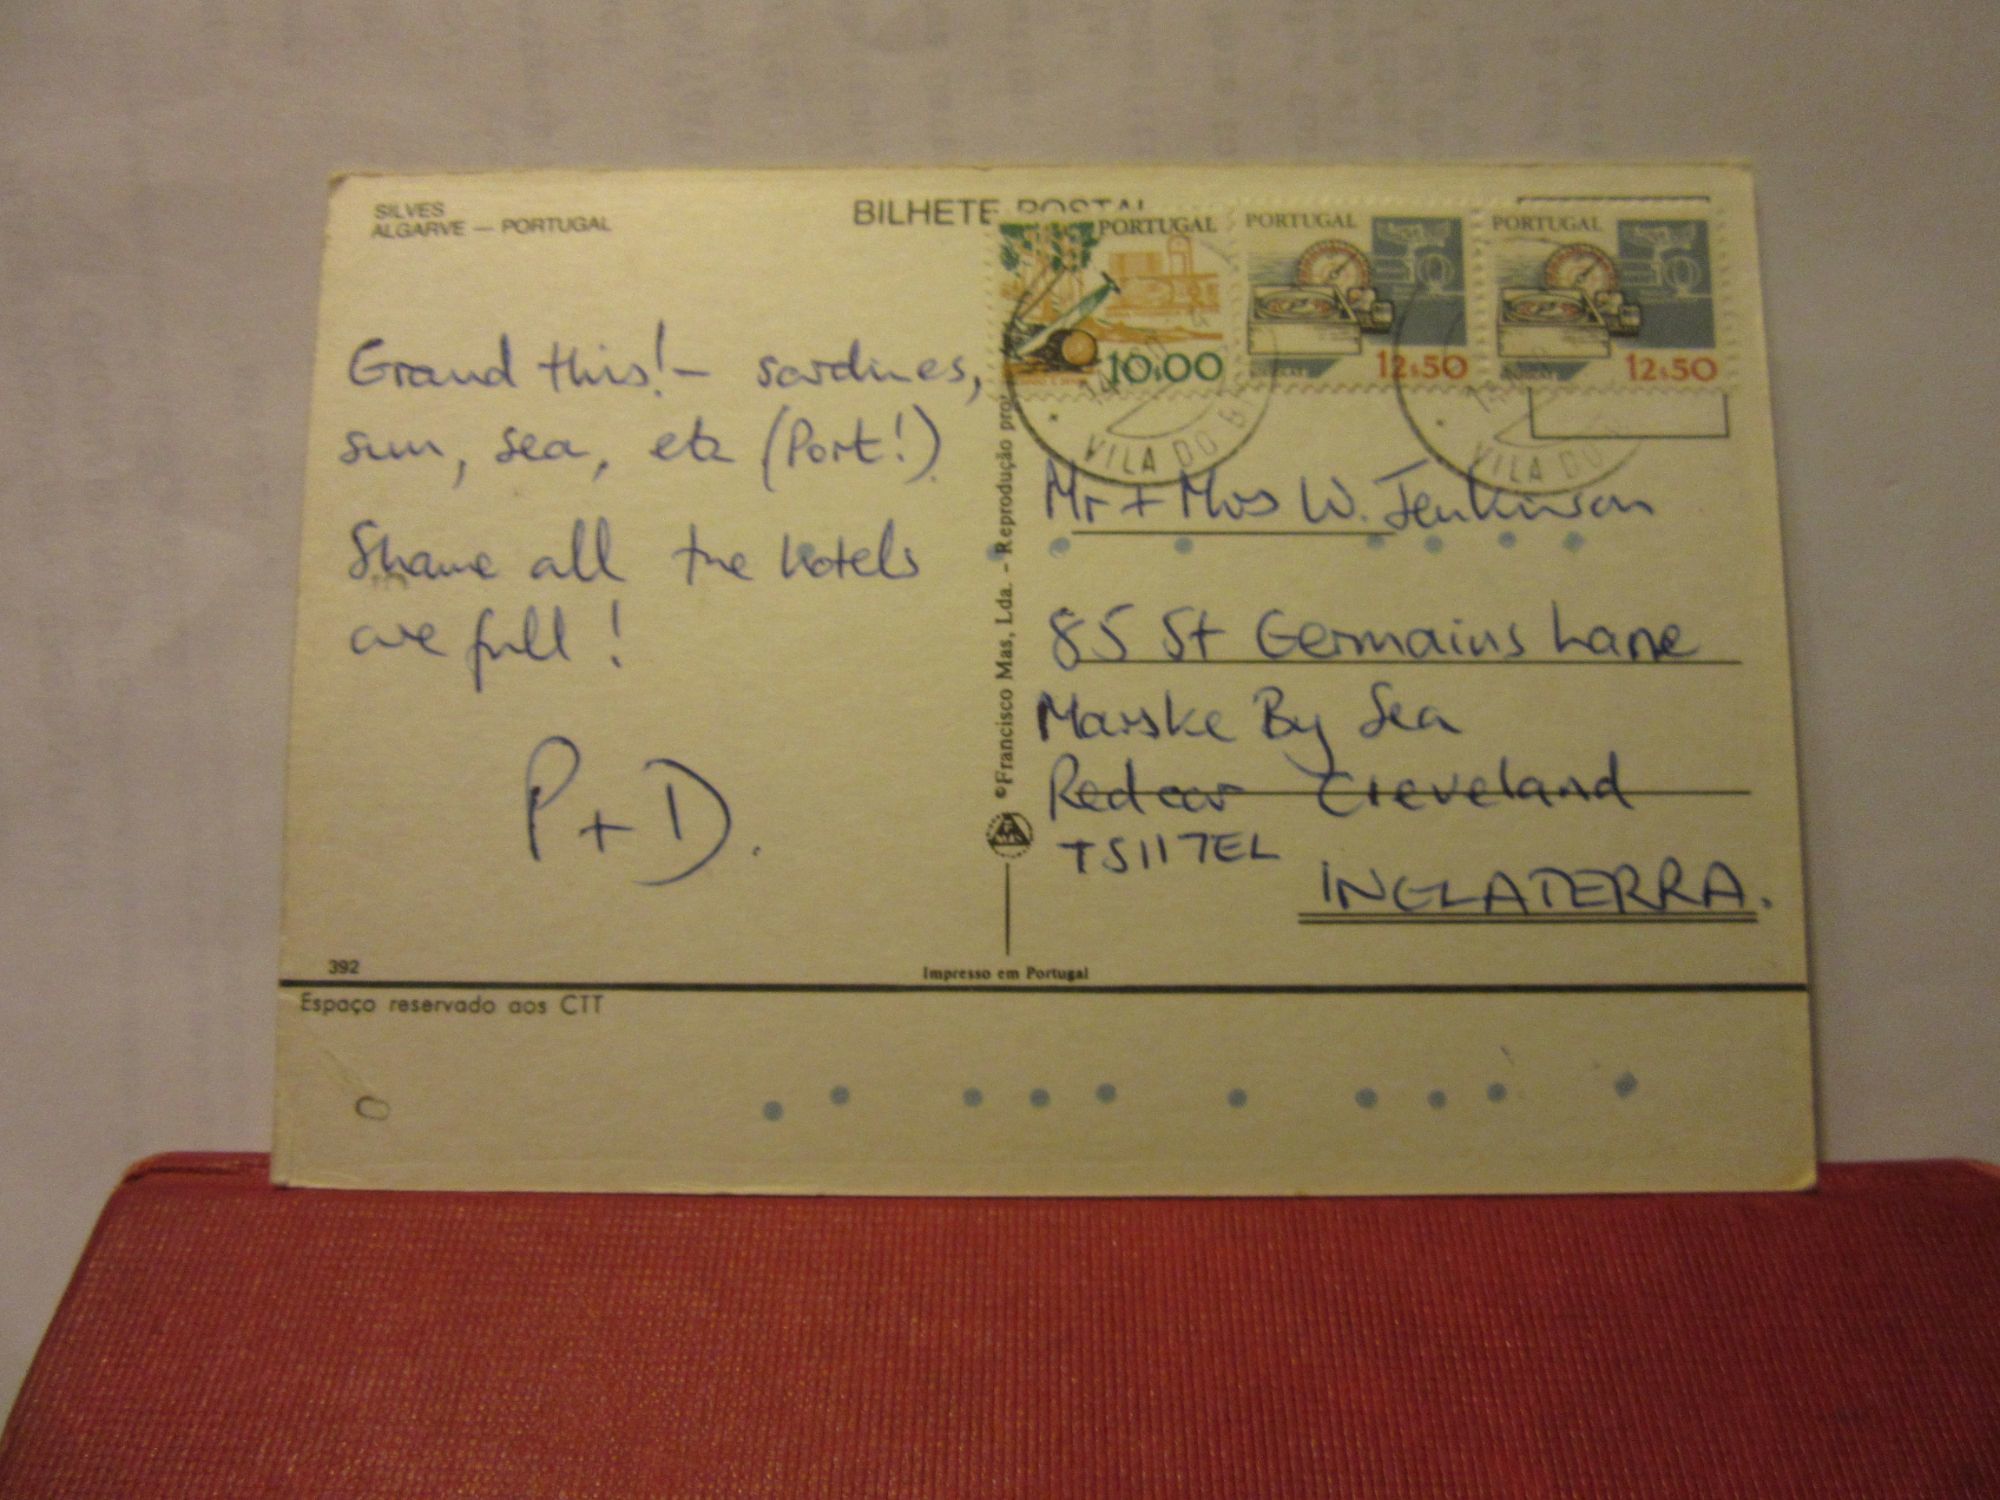 SILVES
ALGARVE — PORTUGAL
BILHETE POSTAL
PORTUGAL
10.00
PORTUGAL
12$50
PORTUGAL
12$50
VILA DO
VILA DO
Grand this! - sardines,
sun, sea, etc (Port!).
Shame all the hotels
are full!
P + D.
©Francisco Mas, Lda. - Reprodução
Mr + Mrs W. Jenkinson
85 St Germains Lane
Marske By Sea
Redcar Cleveland
TS11 7EL
INGLATERRA.
392
Impresso em Portugal
Espaço reservado aos CTT